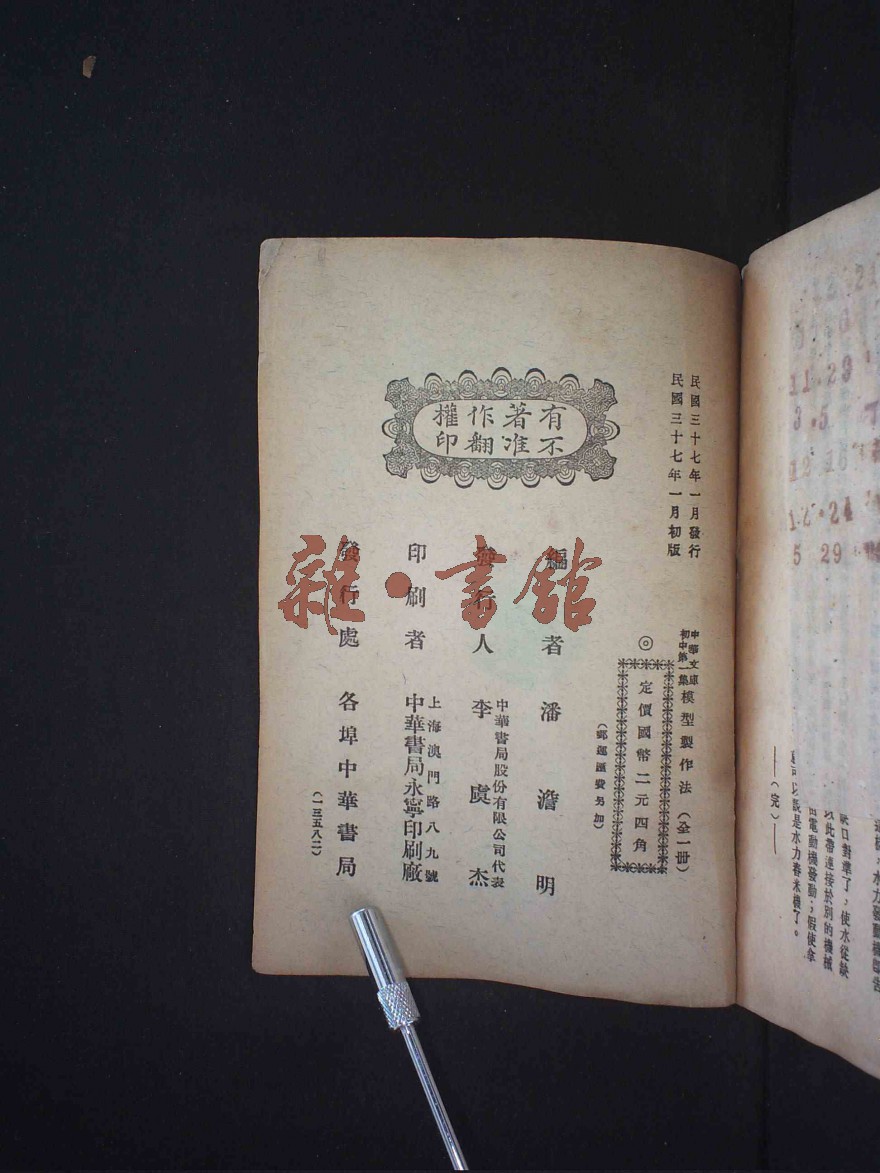 民國三十七年一月發行
民國三十七年一月初版
中華文庫
初中第一集
模型製作法（全一冊）
◎定價國幣二元四角
（郵運匯費另加）
有不
著准
作翻
權印
編者 潘澹明
發行人 李虞杰
中華書局股份有限公司代表
印刷者
上海澳門路八九號
中華書局永寧印刷廠
發行處 各埠中華書局
（一三五八二）
雜·書館
12 24
11·23
3·5
12 16
12·24
5 29
缺口對準了，使水從缺
以此帶連接於別的機械
電動機發動；假使拿
是水力舂米機了。
——（完）——